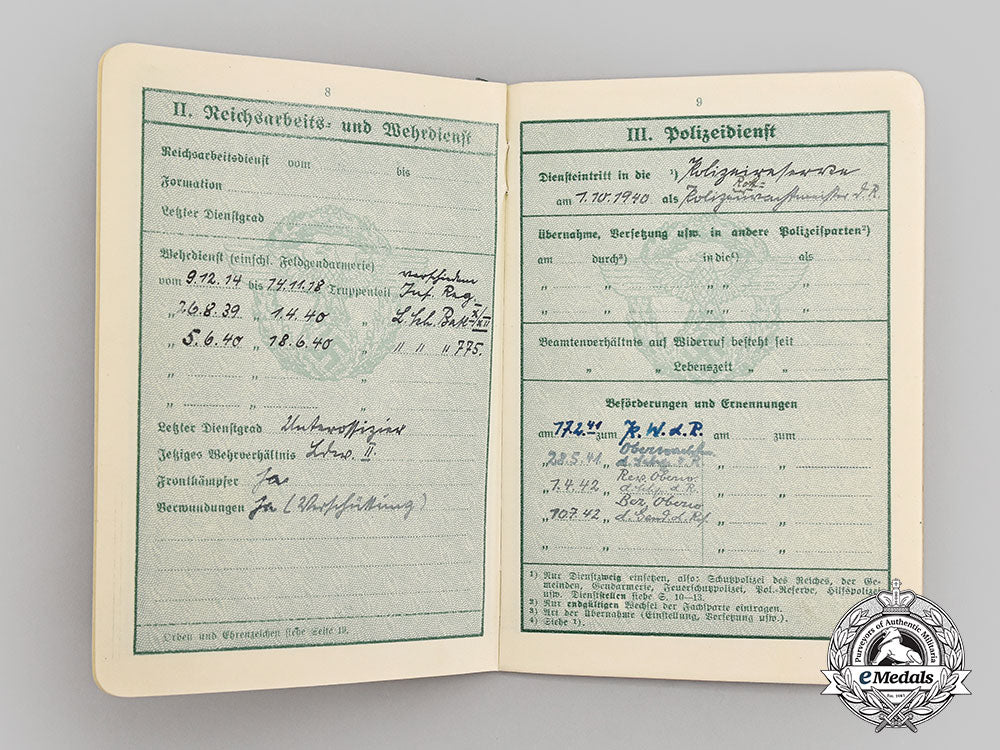 8
II. Reichsarbeits- und Wehrdienst
Reichsarbeitsdienst vom bis
Formation
Letzter Dienstgrad
Wehrdienst (einschl. Feldgendarmerie)
verschieden
vom 9.12.14 bis 14.11.18 Truppenteil Inf. Reg.
„ 26.8.39 „ 1.4.40 „ L. Sch. Batl. X/XII
„ 5.6.40 „ 18.6.40 „ „ „ „ 775.
„ „ „
„ „ „
Letzter Dienstgrad Unteroffizier
Jetziges Wehrverhältnis Ldw. II.
Frontkämpfer Ja
Verwundungen Ja (Verschüttung)
Orden und Ehrenzeichen siehe Seite 19.
9
III. Polizeidienst
Diensteintritt in die ¹) Polizeireserve
am 1.10.1940 als Polizeiwachtmeister d. R.
Übernahme, Versetzung usw. in andere Polizeisparten²)
am durch³) in die⁴) als
„ „ „ „ „
„ „ „ „ „
Beamtenverhältnis auf Widerruf besteht seit
„ „ Lebenszeit „ „
Beförderungen und Ernennungen
am 17.2.41 zum W. d. R. am zum
„ 28.5.41 „ d. R. „ „
Rev. Oberw.
„ 1.4.42 „ d. R. „ „
Bez. Oberw.
„ 10.7.42 „ d. Gend. d. Res. „ „
„ „ „ „
¹) Nur Dienstzweig einsetzen, also: Schutzpolizei des Reiches, der Ge-
meinden, Gendarmerie, Feuerschutzpolizei, Pol.-Reserve, Hilfspolizei
usw. Dienststellen siehe S. 10—13.
²) Nur endgültigen Wechsel der Fachsparte eintragen.
³) Art der Übernahme (Einstellung, Versetzung usw.).
⁴) Siehe ¹).
Purveyors of Authentic Militaria
eMedals